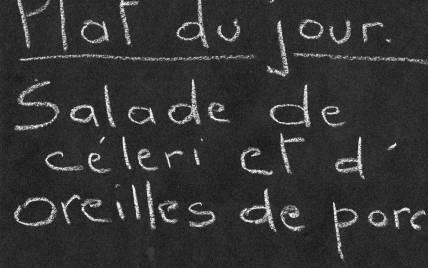 Plat du jour.
Salade de
céleri et d'
oreilles de porc